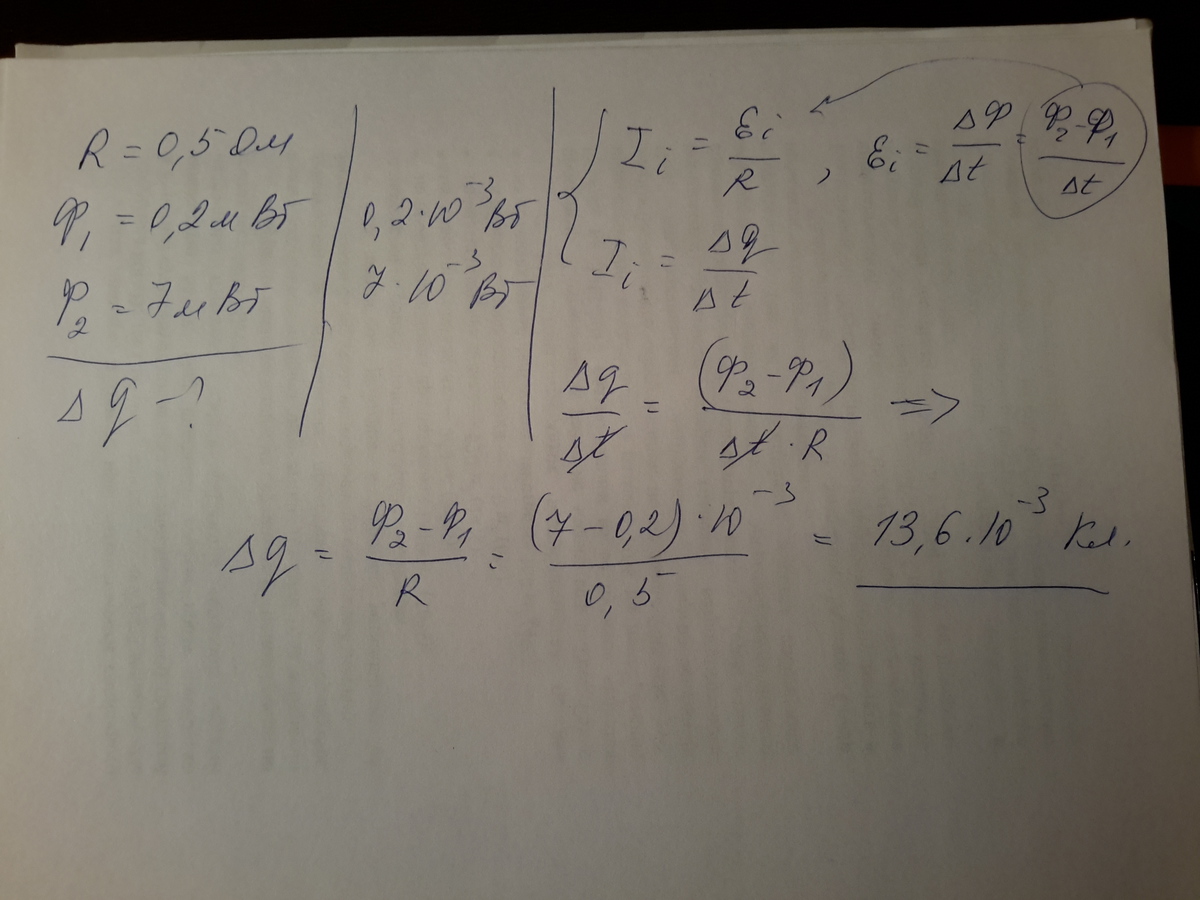 R = 0,5 Ом
Ф₁ = 0,2 м Вб
Ф₂ = 7 м Вб
Δq - ?
0,2·10⁻³ Вб
7·10⁻³ Вб
Iᵢ = Ɛᵢ/R , Ɛᵢ = ΔФ/Δt = (Ф₂-Ф₁)/Δt
Iᵢ = Δq/Δt
Δq/Δt = (Ф₂-Ф₁)/(Δt·R) =>
Δq = (Ф₂-Ф₁)/R = (7-0,2)·10⁻³/0,5 = 13,6·10⁻³ Кл.